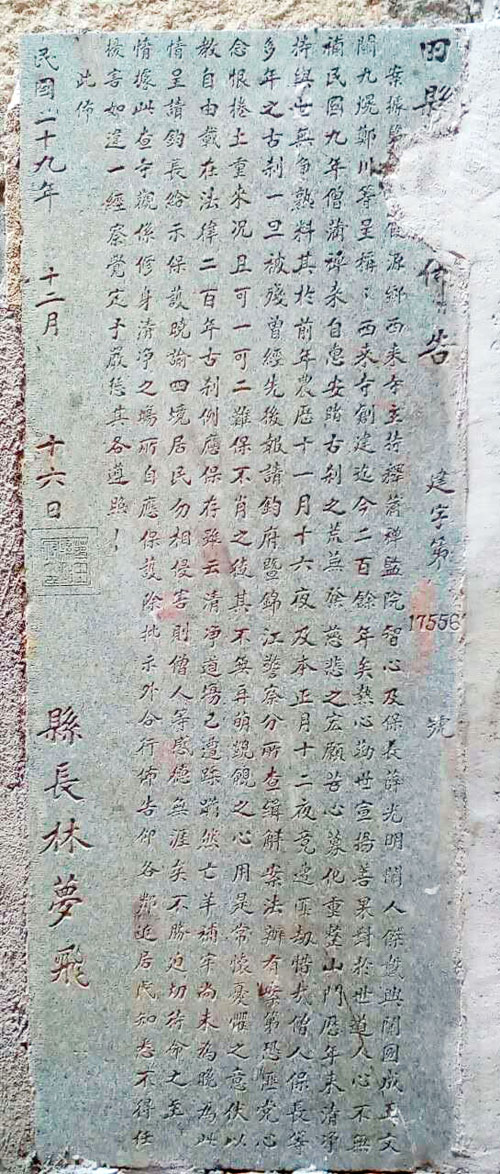 田縣 佈告 建字第 17556 號
案據 源鄉西來寺主持釋蒲禪監院智心及保長薛光明關人傑 與關國成王文
關九焜鄭川等呈稱：西來寺創建迄今二百餘年矣熱心勸世宣揚善果對於世道人心不無
補民國九年僧蒲禪來自惠安睹古刹之荒蕪發慈悲之宏願苦心募化重整山門歷年來清淨
持與世無爭孰料其於前年農歷十一月十六夜及本正月十二夜竟遭匪劫惜哉僧人保長等
多年之古刹一旦被殘曾經先後報請鈞府暨錦江警察分所查緝解案法辦有案第恐匪党心
念恨捲土重來况且可一可二難保不肖之徒其不無再萌覬覦之心用是常懷憂懼之意伏以
教自由載在法律二百年古刹例應保存雖云清淨道場已遭蹂躪然亡羊補牢尚未為晚為此
情呈請鈞長給示保護曉諭四境居民勿相侵害則僧人等感德無涯矣不勝迫切待命之至
情據此查寺觀係修身清淨之場所自應保護除批示外合行佈告仰各鄰近居民知悉不得任
擾害如違一經察覺定予嚴懲其各遵照！
此佈
民國二十九年 十二月 十六日
縣長林夢飛